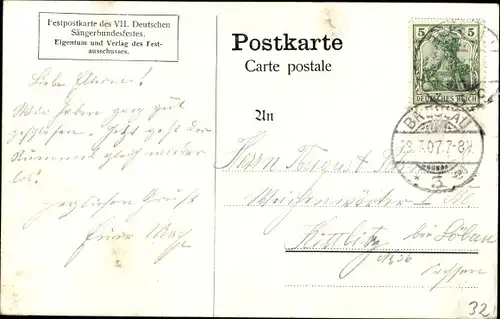 Festpostkarte des VII. Deutschen
Sängerbundesfestes.
Eigentum und Verlag des Fest-
ausschusses.
Postkarte
Carte postale
An
5 5
DEUTSCHES REICH
BRESLAU
28.7.07.7-8V.
* 3
Liebe Eltern!
Wir haben ganz gut
geschlafen. Jetzt geht der
Rummel gleich wieder
los!
Herzlichen Gruß
Eure
Herrn August
Weichenwärter
Kittlitz bei Löbau
No 36
Sachsen
32